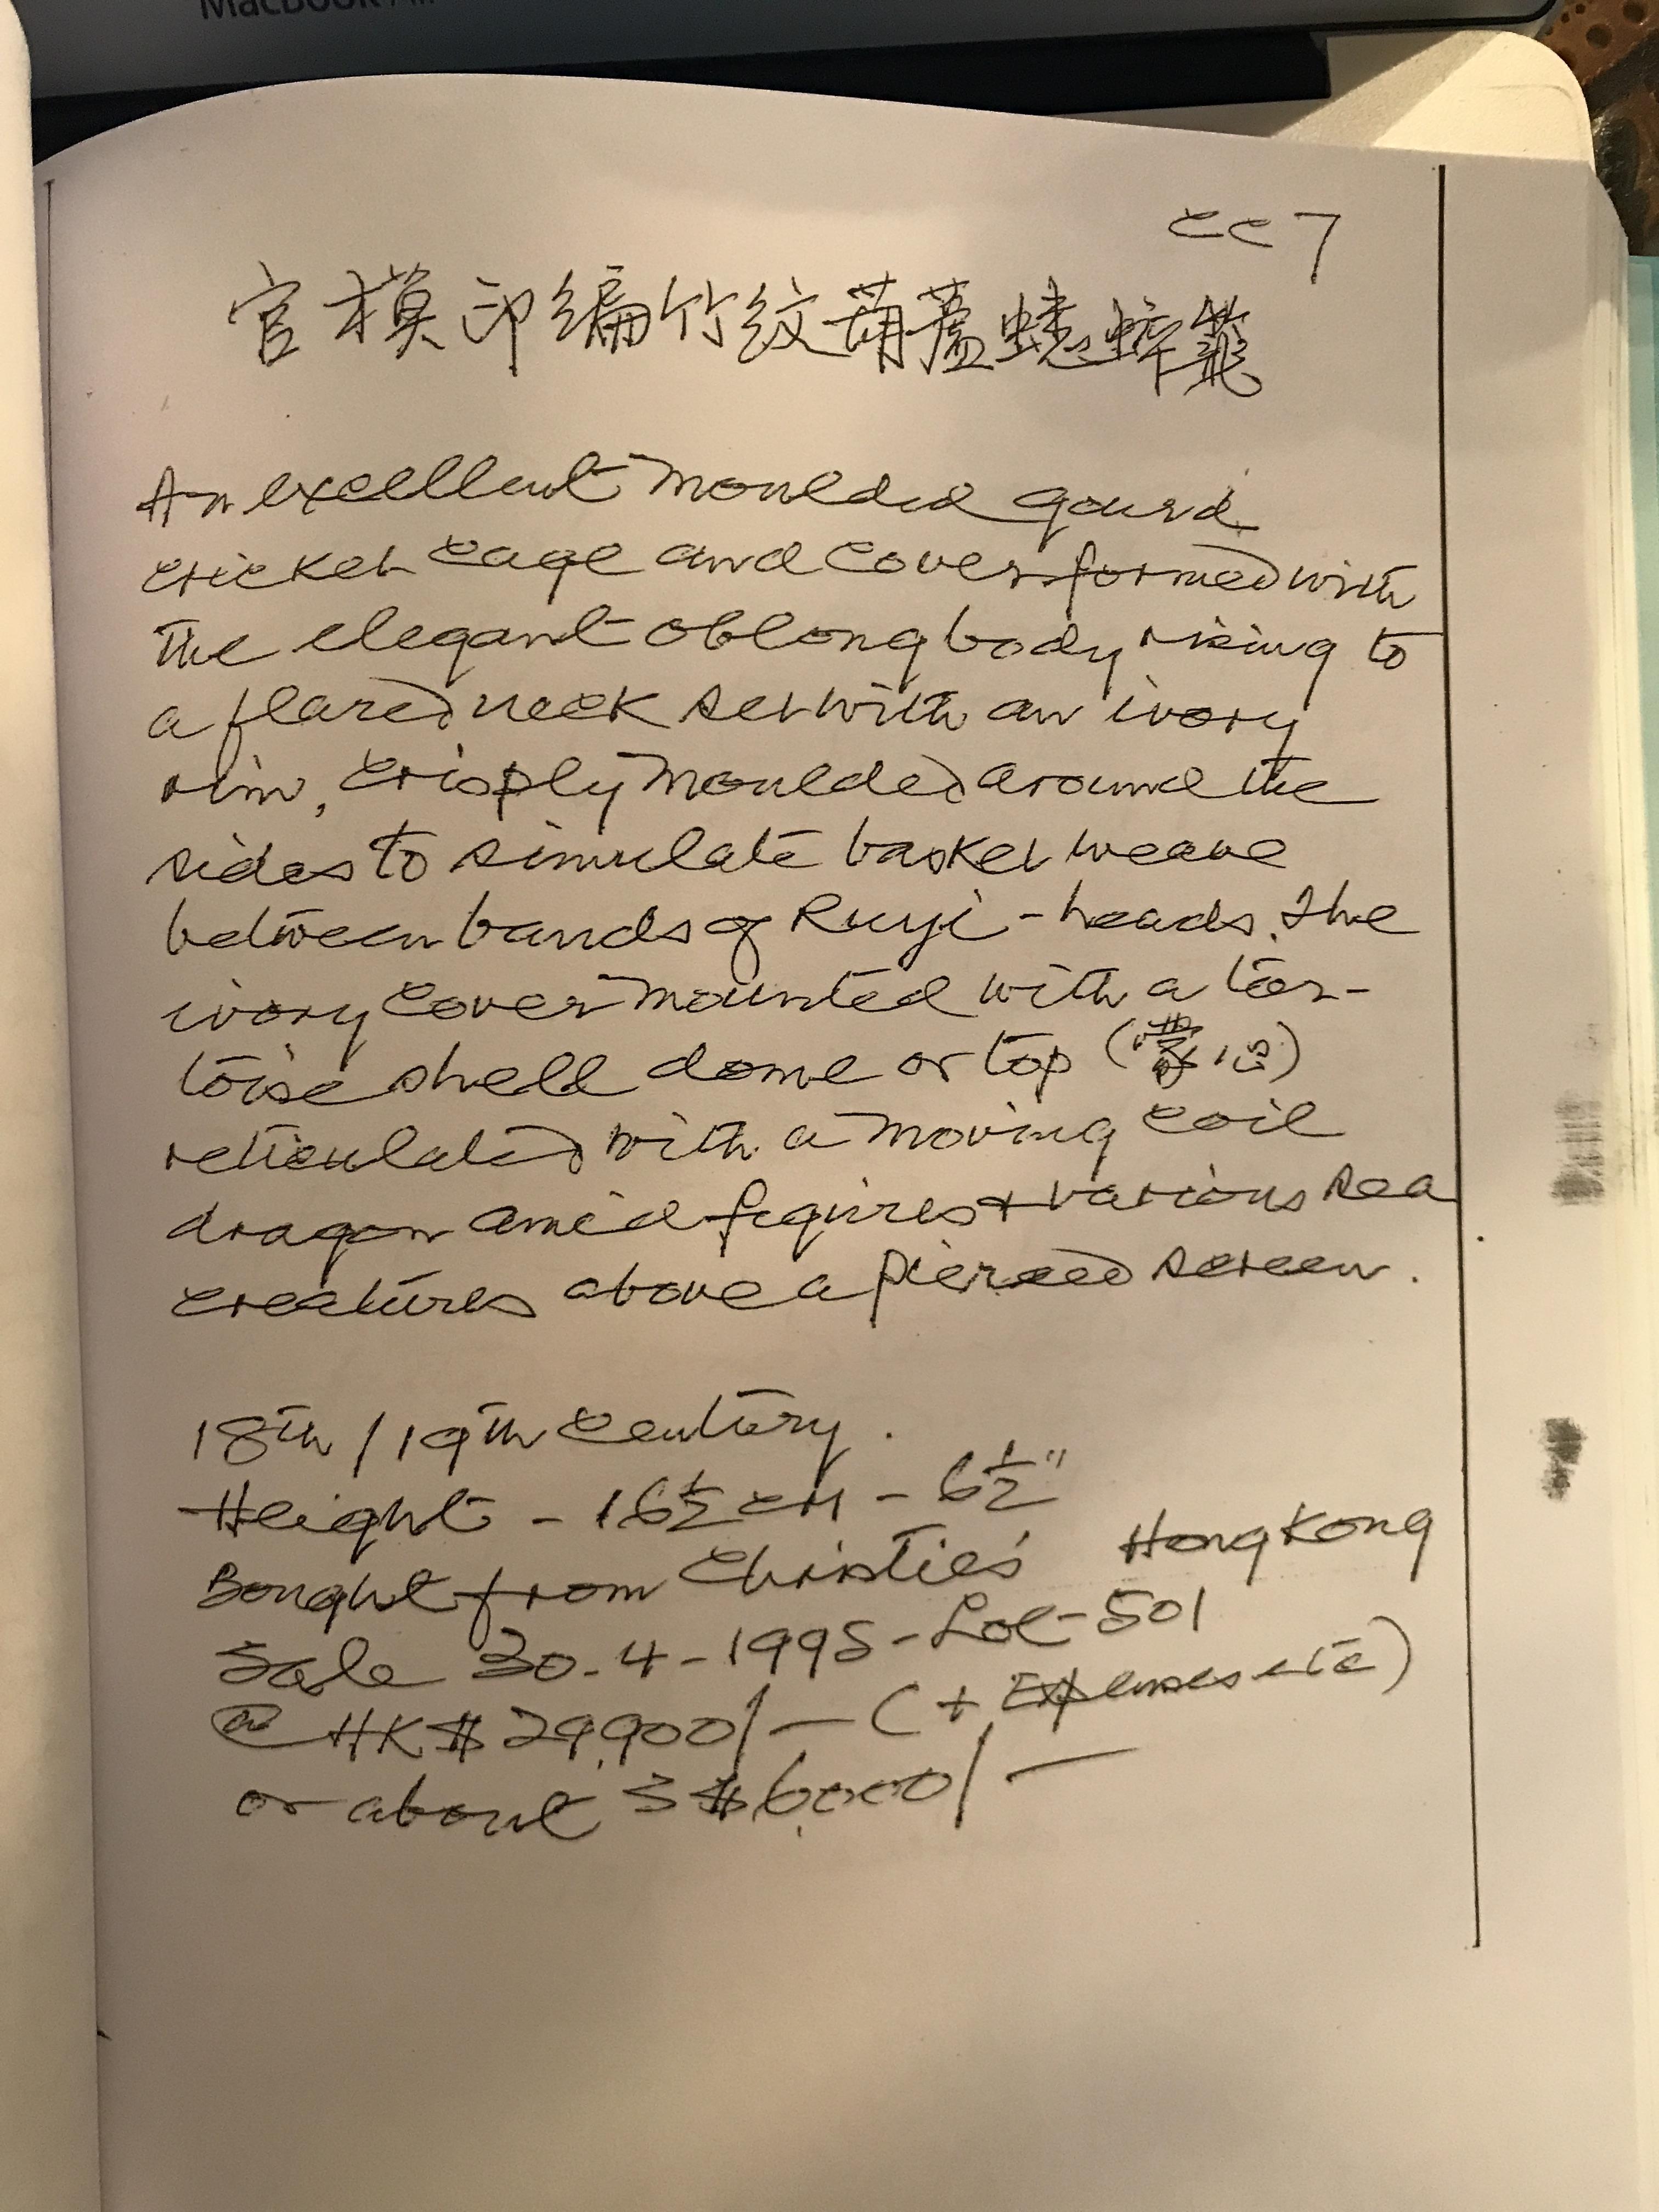 MacBook Air
CC 7
官模印编竹纹葫蘆蟋蟀
An excellent Moulded gourd
cricket cage and cover formed with
the elegant oblong body rising to
a flared neck set with an ivory
rim, crisply Moulded around the
sides to simulate basket weave
between bands of Ruyi-heads. The
ivory cover mounted with a tor-
toise shell dome or top (蒙心)
reticulated with a moving coil
dragon amid figures + various sea
creatures above a pierced screen.
18th / 19th Century.
Height - 16½ cm - 6½"
Bought from Christie's Hong Kong
Sale 30-4-1995-Lot-501
@ HK$ 29,900/- (+ Expenses etc)
or about S$6,000/-